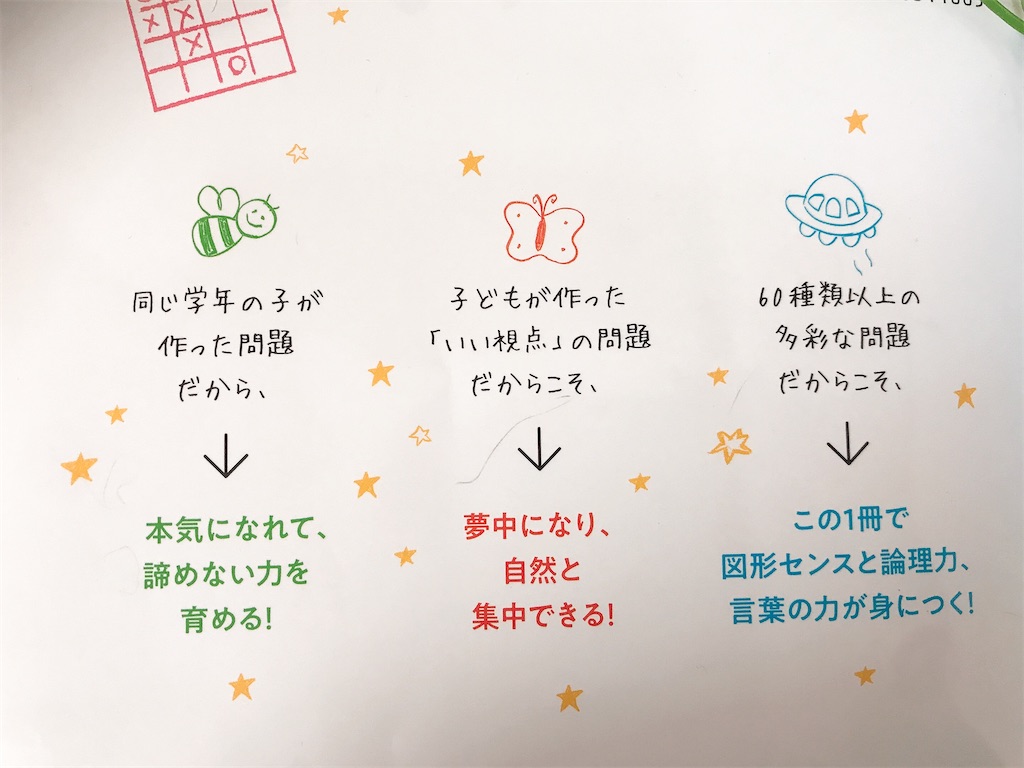 同じ学年の子が
作った問題
だから、
本気になれて、
諦めない力を
育める!
子どもが作った
「いい視点」の問題
だからこそ、
夢中になり、
自然と
集中できる!
60種類以上の
多彩な問題
だからこそ、
この1冊で
図形センスと論理力、
言葉の力が身につく!